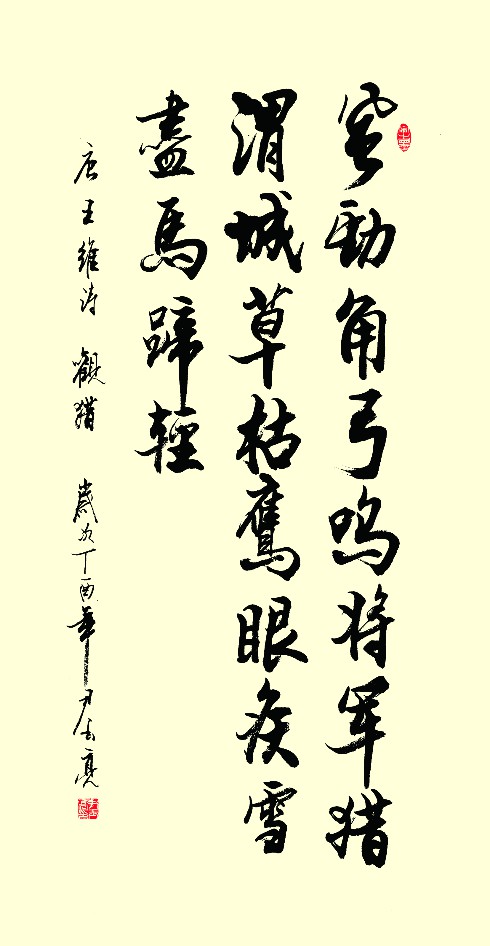 風勁角弓鳴将軍猎
渭城草枯鷹眼疾雪
盡馬蹄輕
唐王維诗 觀猎 歲次丁酉年